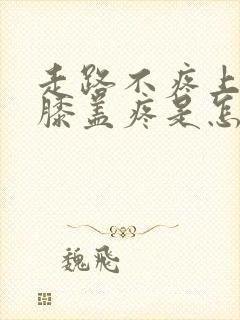 走路不疼上
膝盖疼是怎
魏飛